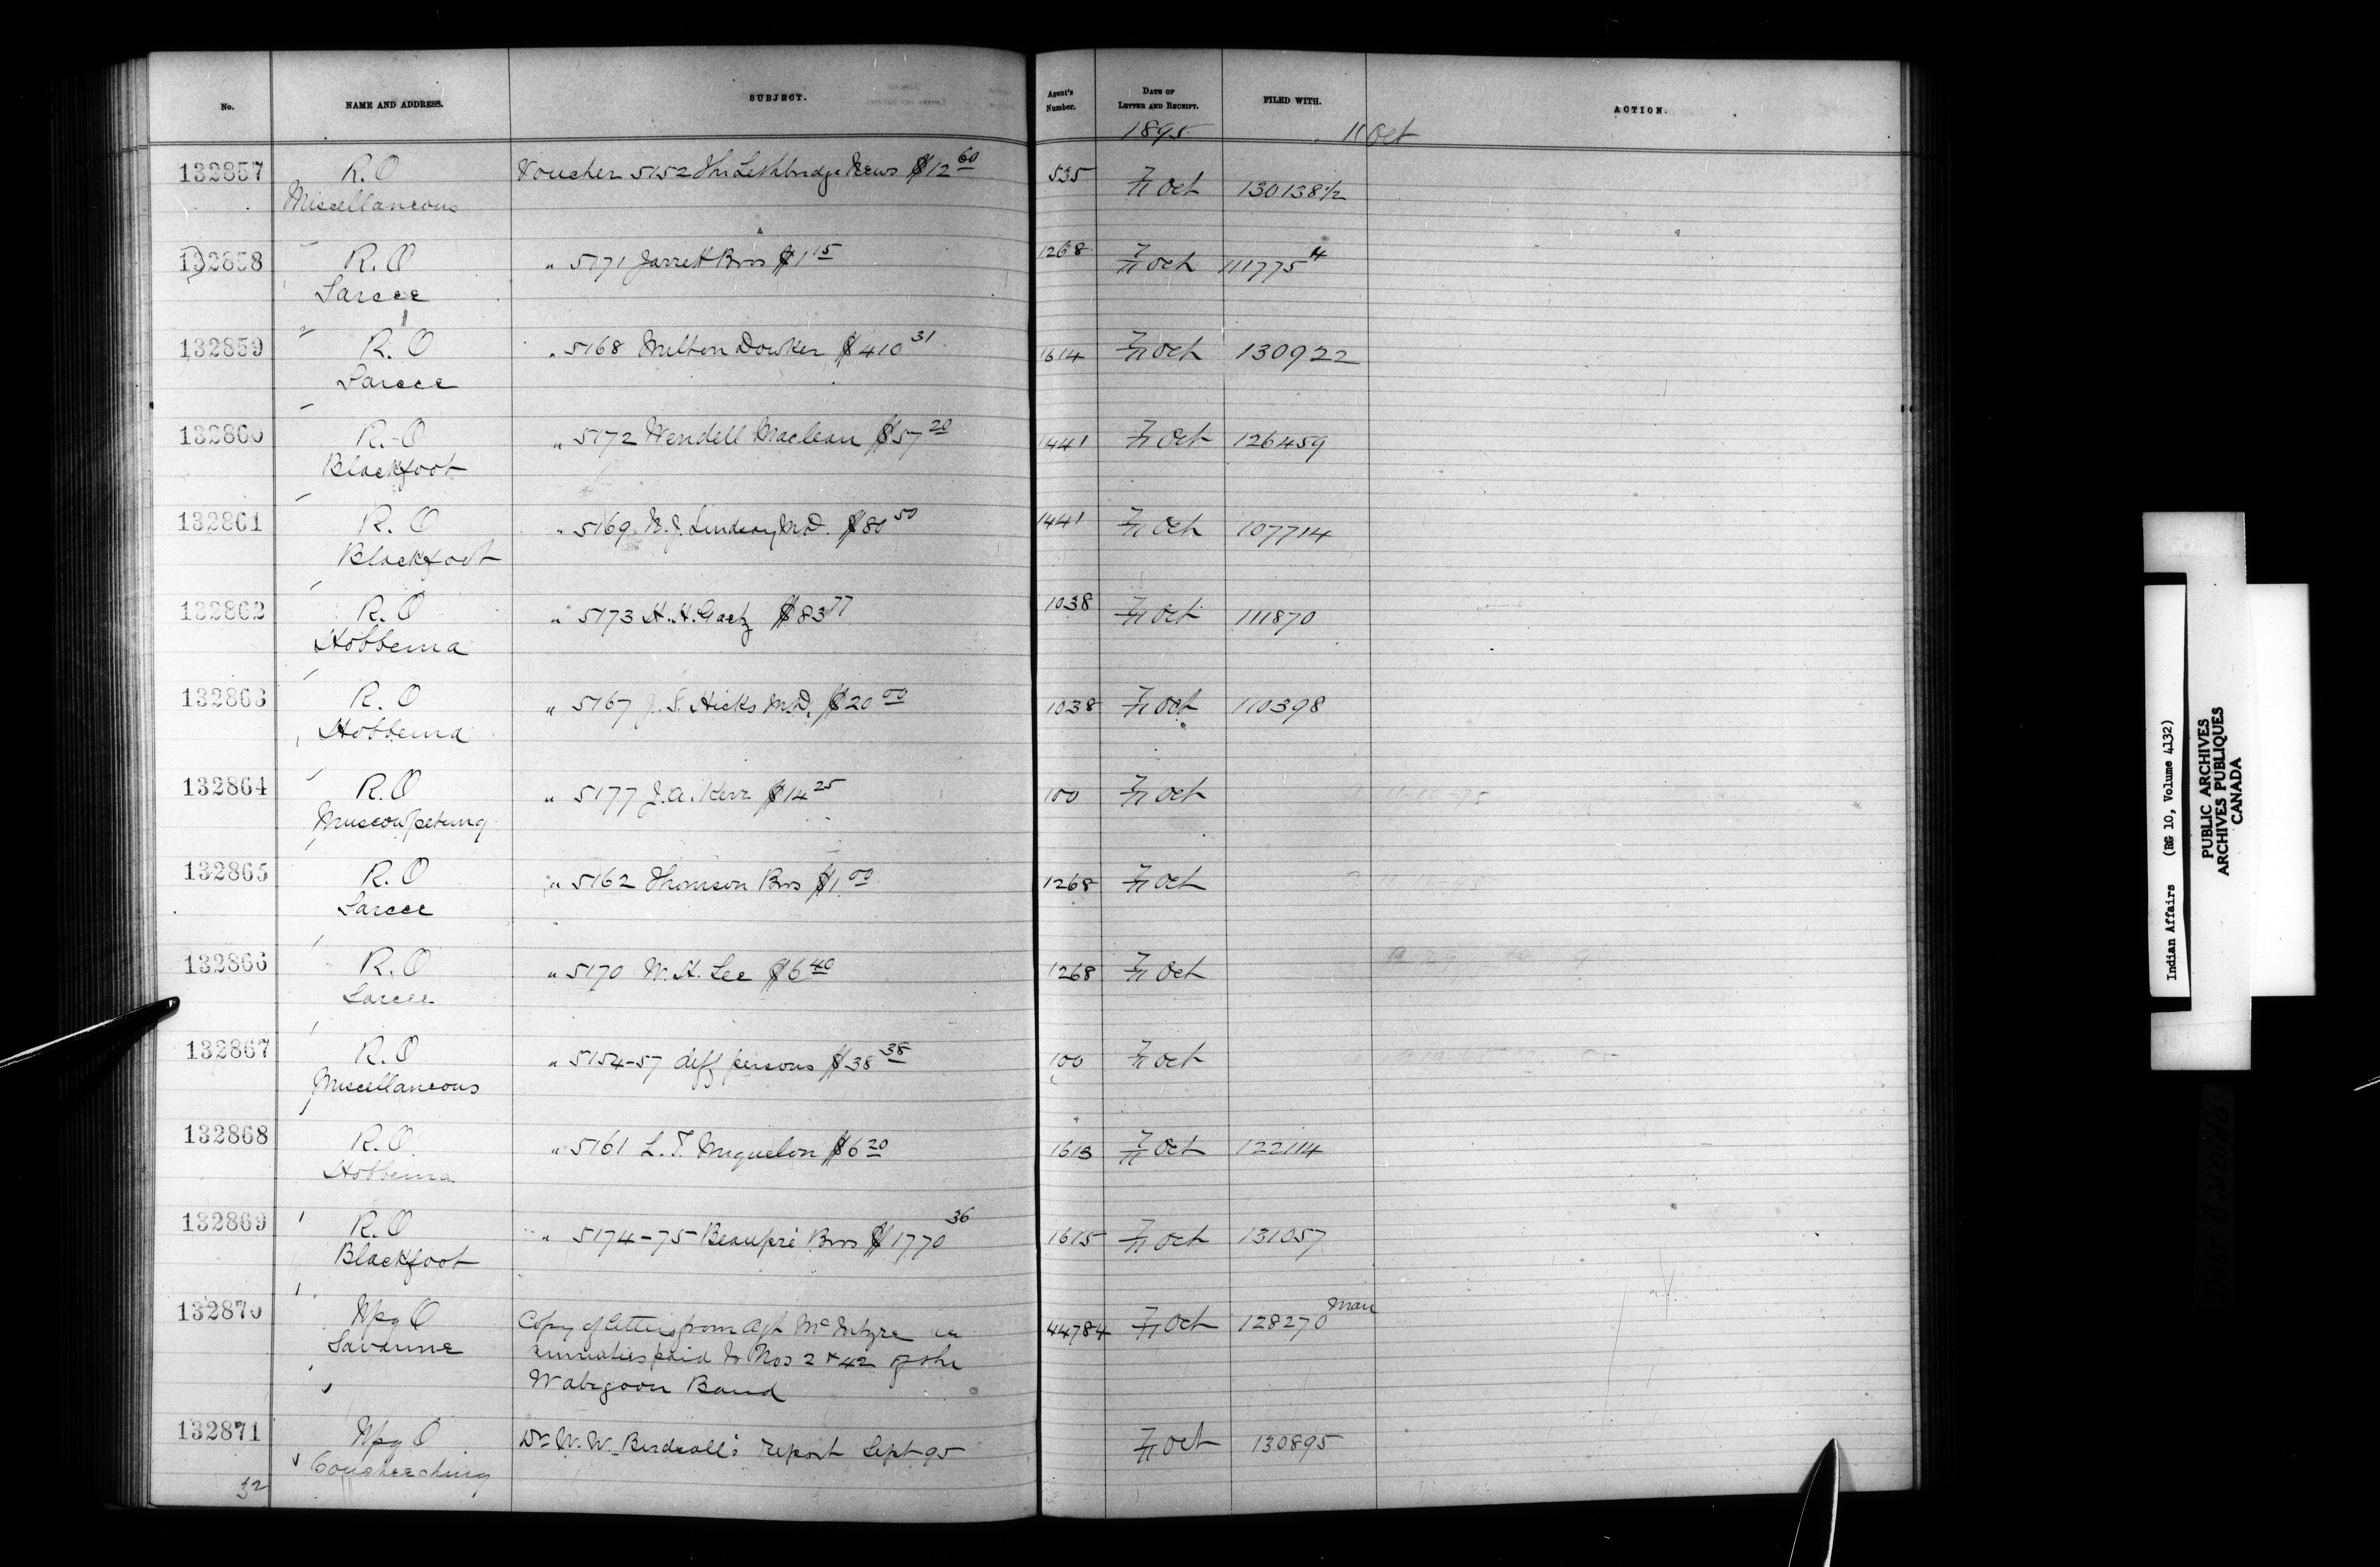 No. NAME AND ADDRESS. SUBJECT. Agent's Number. DATE OF LETTER AND RECEIPT. FILED WITH. ACTION.
1895 11 Oct
132857 R.O Voucher 5152 The Lethbridge News $12 60 535 7/11 Oct 130138 1/2
Miscellaneous
132858 R.O " 5171 Jarrett Bros $1 15 1268 7/11 Oct 111775 4
Sarcee
132859 R.O " 5168 Milton Dowker $410 31 1614 7/11 Oct 130922
Sarcee
132860 R.O " 5172 Wendell Maclean $57 20 1441 7/11 Oct 126459
Blackfoot
132861 R.O " 5169 N.J. Lindsay M.D. $80 50 1441 7/11 Oct 107714
Blackfoot
132862 R.O " 5173 H.H. Gaetz $83 77 1038 7/11 Oct 111870
Hobbema
132863 R.O " 5167 J.S. Hicks M.D. $20 00 1038 7/11 Oct 110398
Hobbema
132864 R.O " 5177 J.A. Kerr $14 25 100 7/11 Oct
Muscowpetung
132865 R.O " 5162 Thomson Bros $1 00 1268 7/11 Oct
Sarcee
132866 R.O " 5170 W.H. Lee $6 40 1268 7/11 Oct
Sarcee
132867 R.O " 5154-57 diff persons $38 38 100 7/11 Oct
Miscellaneous
132868 R.O. " 5161 L.T. Miquelon $6 20 1613 7/11 Oct 122114
Hobbema
132869 R.O " 5174-75 Beaupré Bros $1770 36 1615 7/11 Oct 131057
Blackfoot
132870 Wpg O Copy of letters from Agt McIntyre re 44784 7/11 Oct 128270 Man
Savanne annuities paid to Nos 2 & 42 of the
Wabigoon Band
132871 Wpg O Dr W.W. Birdsall's report Sept 95 7/11 Oct 130895
Coucheeching
32
Indian Affairs (RG 10, Volume 4132)
PUBLIC ARCHIVES
ARCHIVES PUBLIQUES
CANADA